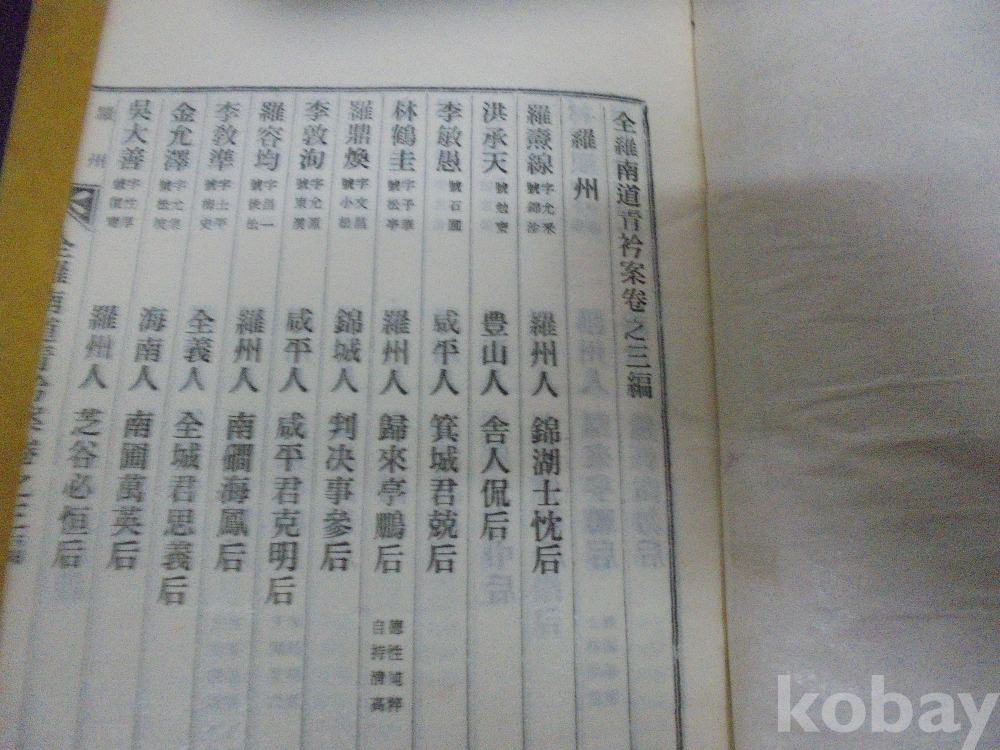 全羅南道青衿案卷之三編
羅州
羅燾線 字允釆 號錦汕 羅州人 錦湖士忱后
洪承天 號勉齋 豊山人 舍人侃后
李敏愚 號石圃 咸平人 箕城君兢后
林鶴圭 字子華 號松亭 羅州人 歸來亭鵬后 德性純粹 自持清高
羅鼎煥 字文昌 號小松 錦城人 判决事參后
李敦洵 字允源 號東溪 咸平人 咸平君克明后
羅容均 字昌一 號後松 羅州人 南磵海鳳后
李敎準 字士平 號梅史 全義人 全城君思義后
金允澤 字允 號松坡 海南人 南圃萬英后
吳大善 羅州人 芝谷必恒后
羅州
全羅南道青衿案卷之三編
kobay